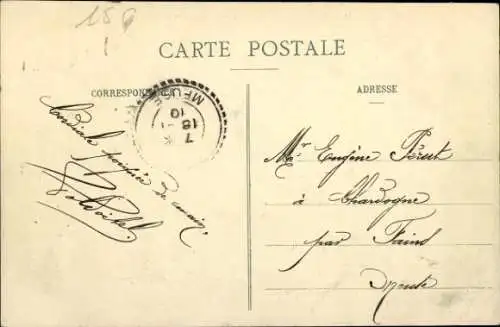 150
CARTE POSTALE
CORRESPONDANCE
ADRESSE
MEUSE
7
18-1
10
Cordiale poignée de main
Mr Eugène Péret
à Chardogne
par Fains
Meuse